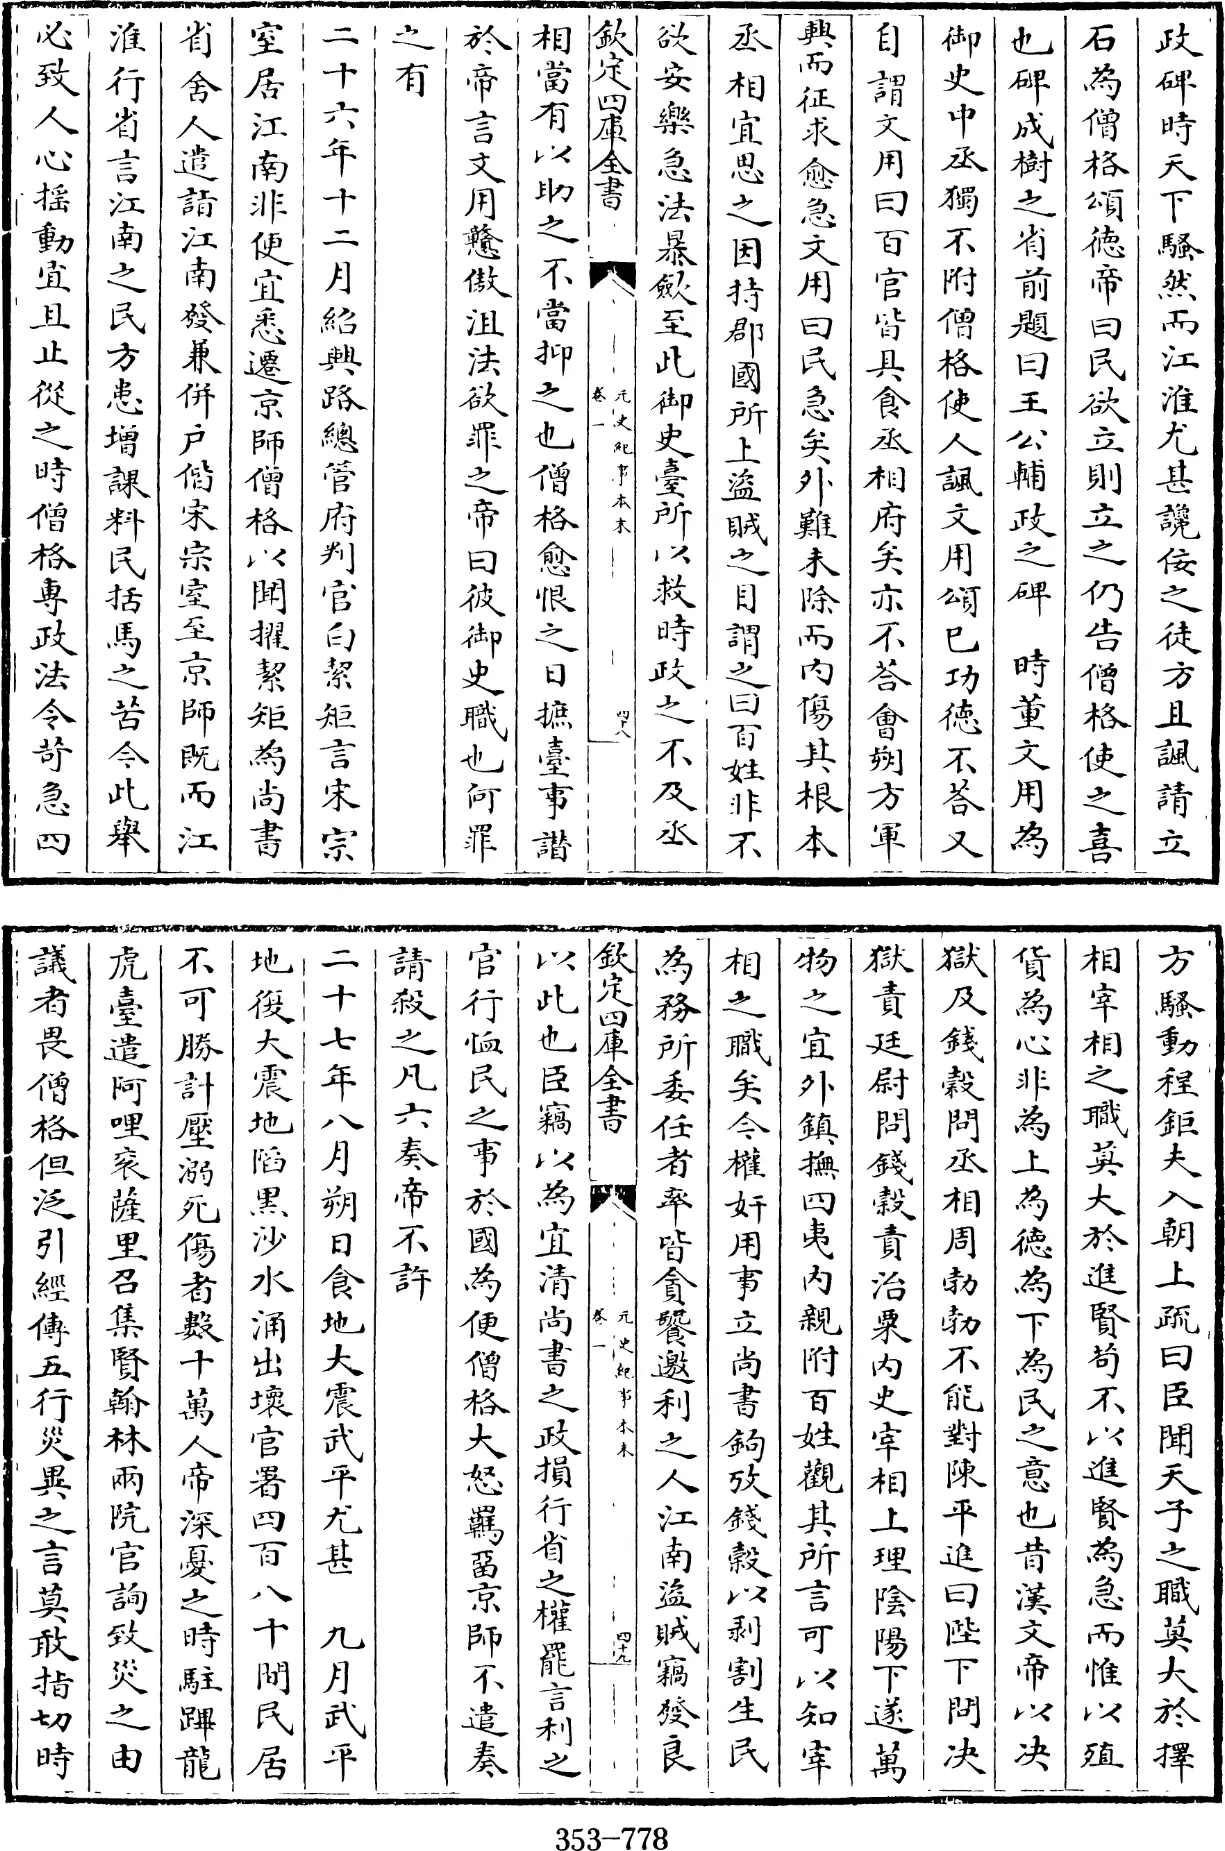 政碑時天下騷然而江淮尤甚讒佞之徒方且諷請立
石為僧格頌德帝曰民欲立則立之仍告僧格使之喜
也碑成樹之省前題曰王公輔政之碑　時董文用為
御史中丞獨不附僧格使人諷文用頌已功德不荅又
自謂文用曰百官皆具食丞相府矣亦不荅會朔方軍
興而征求愈急文用曰民急矣外難未除而内傷其根本
丞相宜思之因持郡國所上盜賊之目謂之曰百姓非不
欲安樂急法暴歛至此御史臺所以救時政之不及丞
欽定四庫全書
元史紀事本末
卷一
四十八
相當有以助之不當抑之也僧格愈恨之日摭臺事譖
於帝言文用戇傲沮法欲罪之帝曰彼御史職也何罪
之有
二十六年十二月紹興路總管府判官白絜矩言宋宗
室居江南非便宜悉遷京師僧格以聞擢絜矩為尚書
省舍人遣詣江南發兼併户偕宋宗室至京師既而江
淮行省言江南之民方患增課料民括馬之苦今此舉
必致人心揺動宜且止從之時僧格專政法令苛急四
方騷動程鉅夫入朝上疏曰臣聞天子之職莫大於擇
相宰相之職莫大於進賢苟不以進賢為急而惟以殖
貨為心非為上為德為下為民之意也昔漢文帝以决
獄及錢穀問丞相周勃勃不能對陳平進曰陛下問决
獄責廷尉問錢穀責治粟内史宰相上理陰陽下遂萬
物之宜外鎮撫四夷内親附百姓觀其所言可以知宰
相之職矣今權奸用事立尚書鉤攷錢穀以剥割生民
為務所委任者率皆貪饕邀利之人江南盜賊竊發良
欽定四庫全書
元史紀事本末
卷一
四十九
以此也臣竊以為宜清尚書之政損行省之權罷言利之
官行恤民之事於國為便僧格大怒羈留京師不遣奏
請殺之凡六奏帝不許
二十七年八月朔日食地大震武平尤甚　九月武平
地復大震地陷黑沙水涌出壞官署四百八十間民居
不可勝計壓溺死傷者數十萬人帝深憂之時駐蹕龍
虎臺遣阿哩衮薩里召集賢翰林兩院官詢致災之由
議者畏僧格但泛引經傳五行災異之言莫敢指切時
353-778